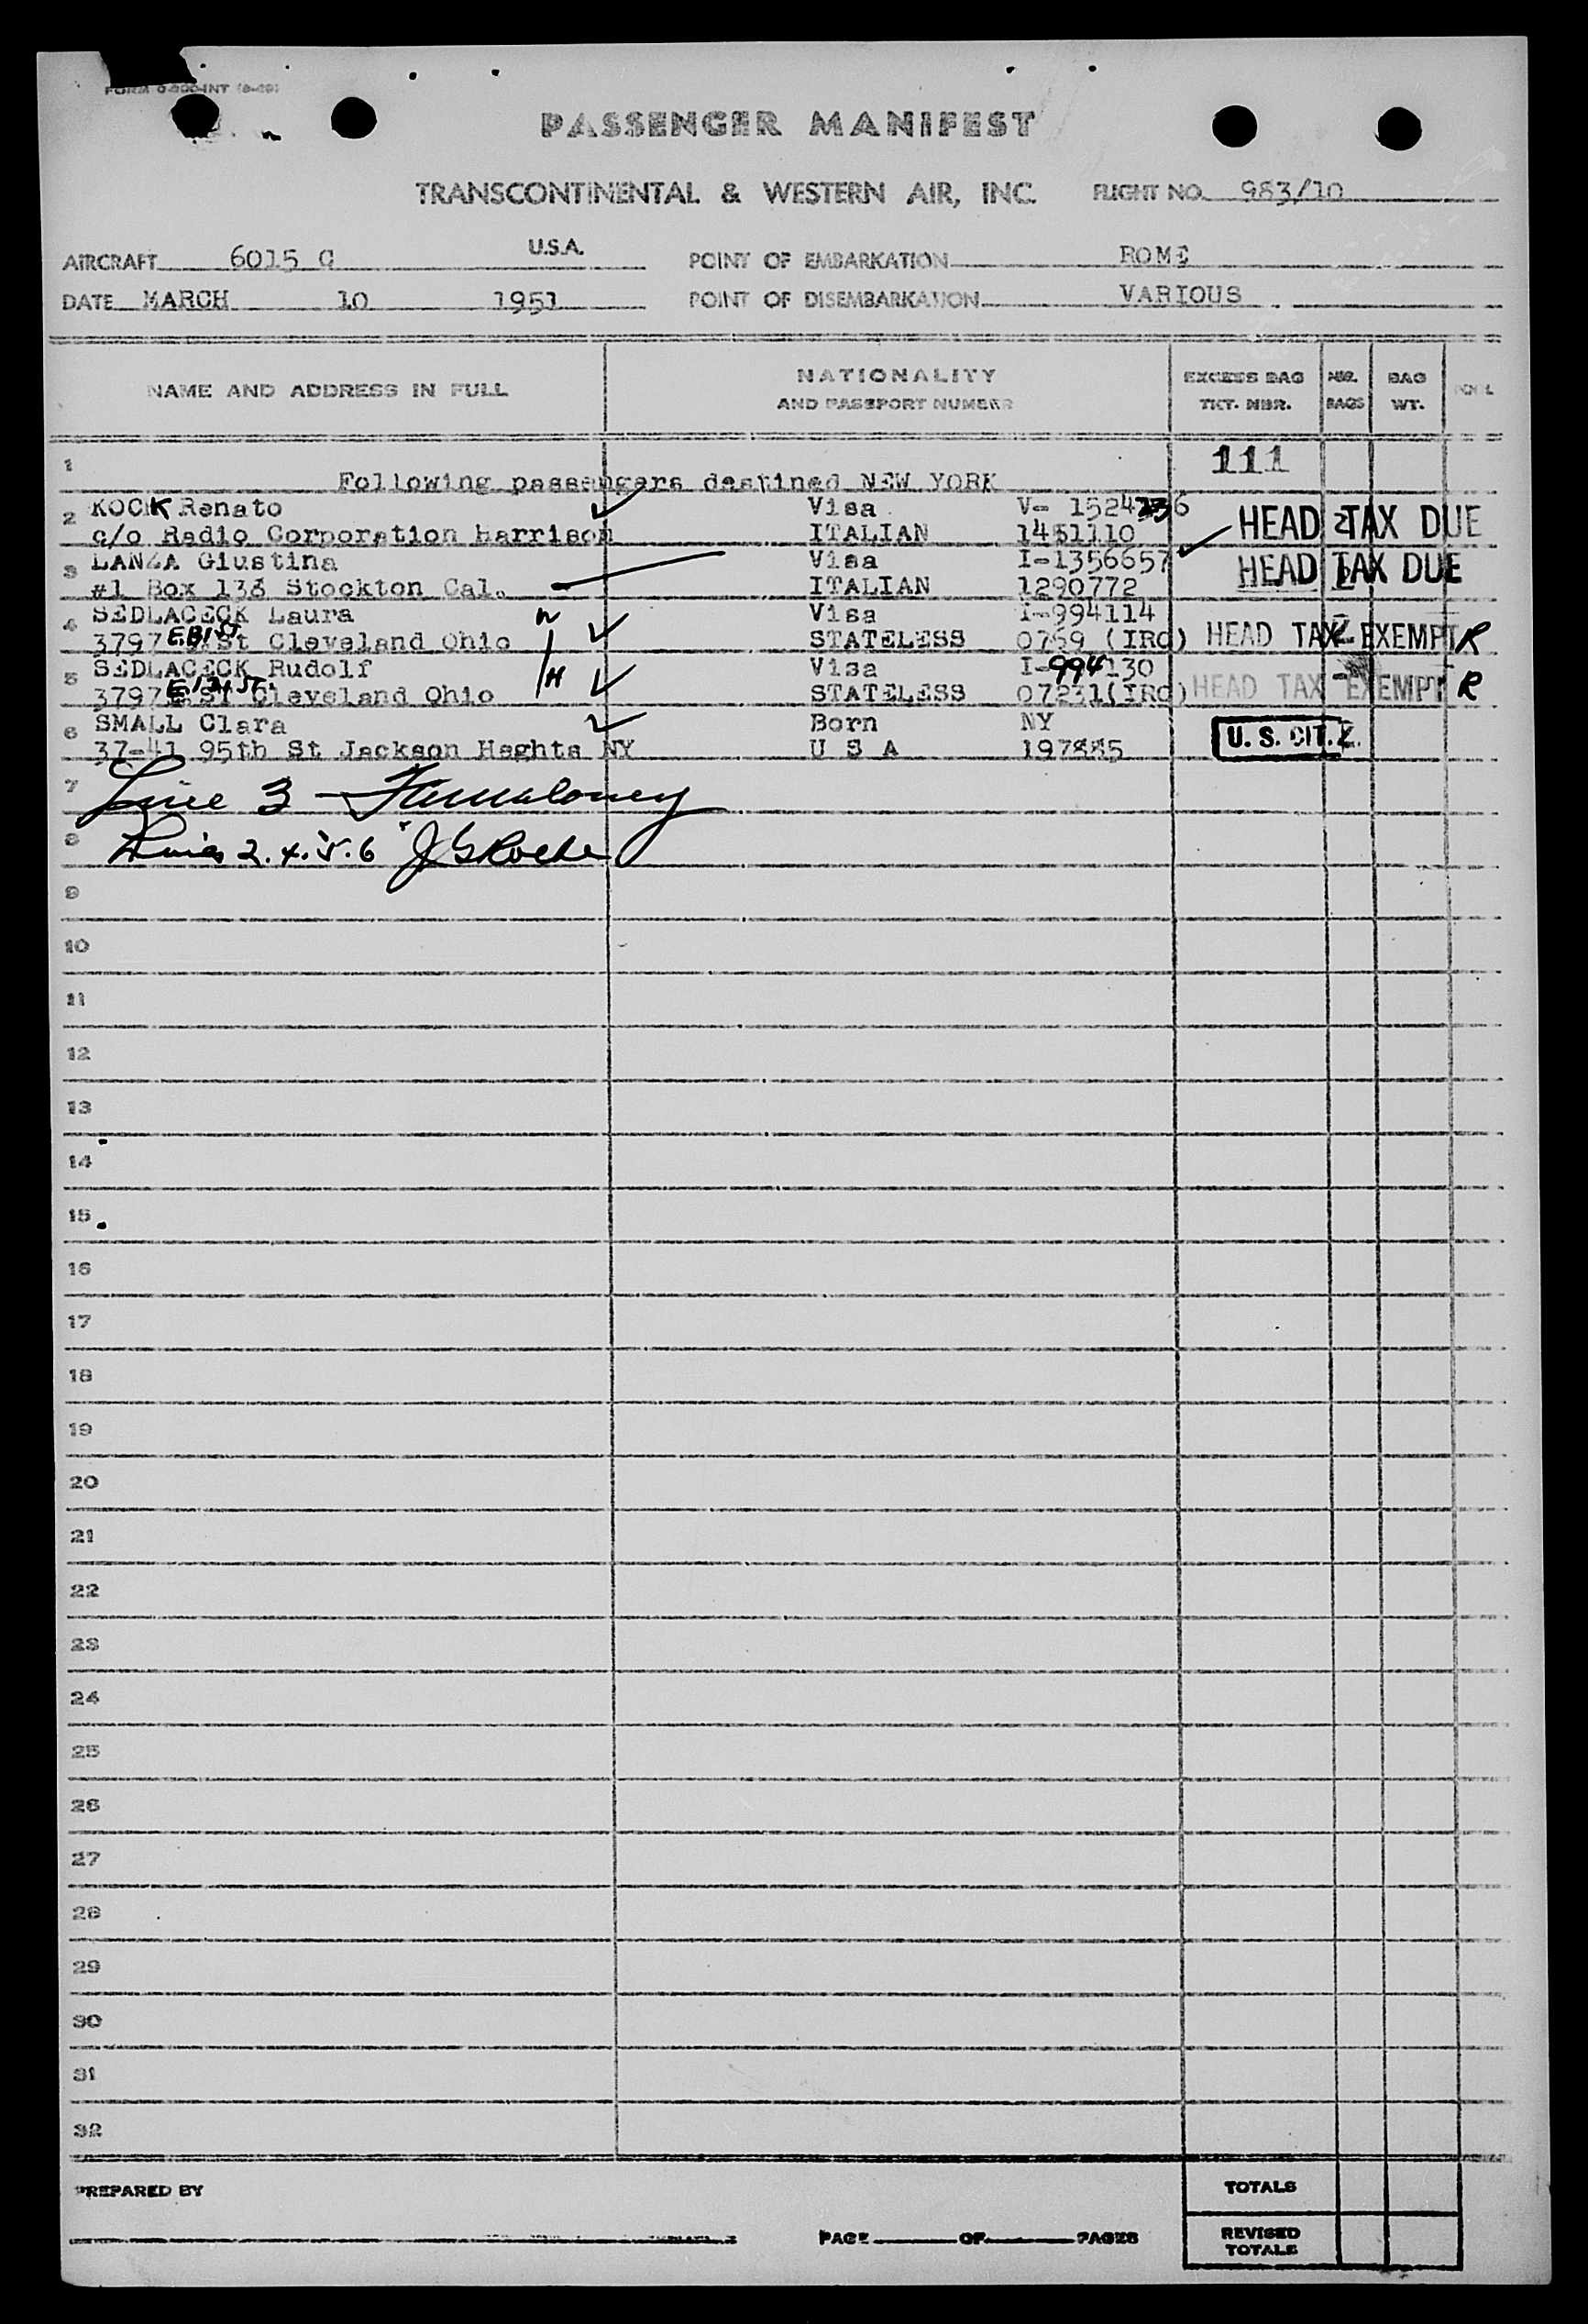 FORM 0-200-INT
PASSENGER MANIFEST
TRANSCONTINENTAL & WESTERN AIR, INC. FLIGHT NO. 983/10
AIRCRAFT 6015 C U.S.A. POINT OF EMBARKATION ROME
DATE MARCH 10 1951 POINT OF DISEMBARKATION VARIOUS
NAME AND ADDRESS IN FULL NATIONALITY AND PASSPORT NUMBER EXCESS BAG TKT. NBR. NBR. BAGS BAG WT.
1 111
Following passengers destined NEW YORK
2 KOCK Renato Visa V- 1524236 HEAD TAX DUE 2
c/o Radio Corporation Harrison ITALIAN 1451110
3 LANZA Giustina Visa I-1356657 HEAD TAX DUE
#1 Box 138 Stockton Cal. ITALIAN 1290772
4 SEDLACECK Laura W Visa I-994114
3797 E 81 ST St Cleveland Ohio STATELESS 0759 (IRO) HEAD TAX EXEMPT R
5 SEDLACECK Rudolf H Visa I-994130
3797 St Cleveland Ohio STATELESS 07231(IRO) HEAD TAX EXEMPT R
6 SMALL Clara Born NY U. S. CIT.
37-41 95th St Jackson Heghts NY U S A 197885
7 Line 3 -
8 Lines 2.4.5.6 J G Roche
9
10
11
12
13
14
15
16
17
18
19
20
21
22
23
24
25
26
27
28
29
30
31
32
PREPARED BY TOTALS
PAGE OF PAGES REVISED TOTALS